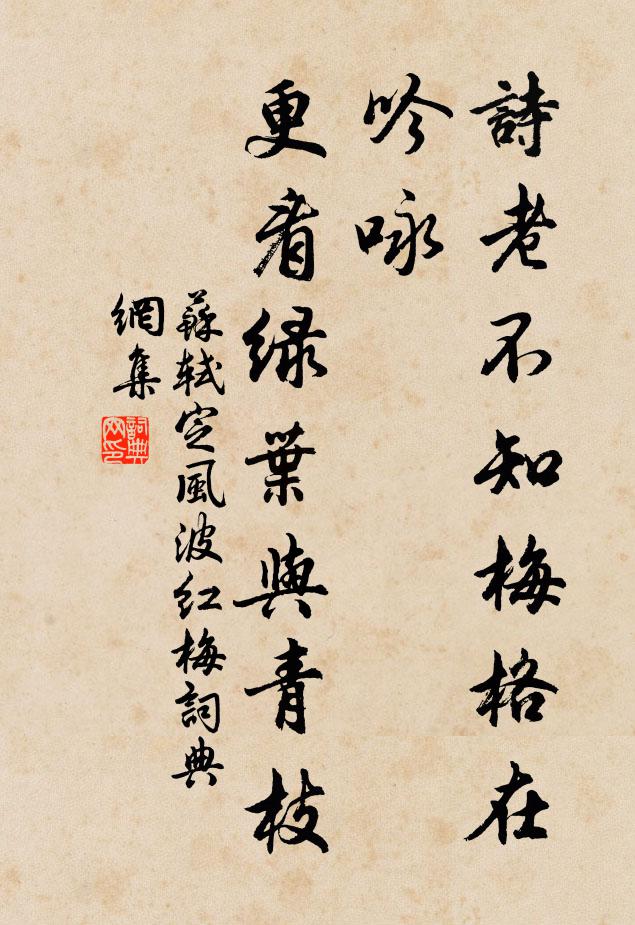 詩老不知梅格在
吟咏
更看绿葉與青枝
蘇軾定風波红梅詞典
網集
詞典
网印